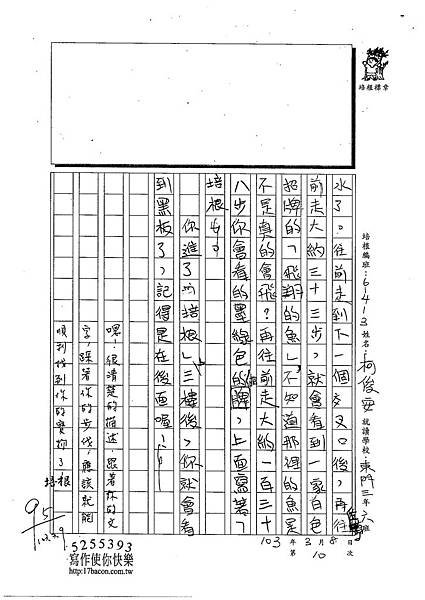 培根標章
培根編班：6413 姓名：柯俊安 就讀學校：東門三年六班
水了。往前走到下一個交叉口後，再往
前走大約三十三步，就會看到一家白色
招牌的「飛翔的魚」，不知道那裡的魚是
不是真的會飛？再往前走大約一百三十
八步你會看的墨綠色的牌，上面寫著「
培根」。
你進了「培根」三樓後，你就會看
到黑板了，記得是在後面喔！
嗯！很清楚的描述，跟著你的文
字，踩著你的步伐，應該就能
順利找到你的寶物了 培根
103年3月8日
第10次
95
5255393
寫作使你快樂
http://17bacon.com.tw/